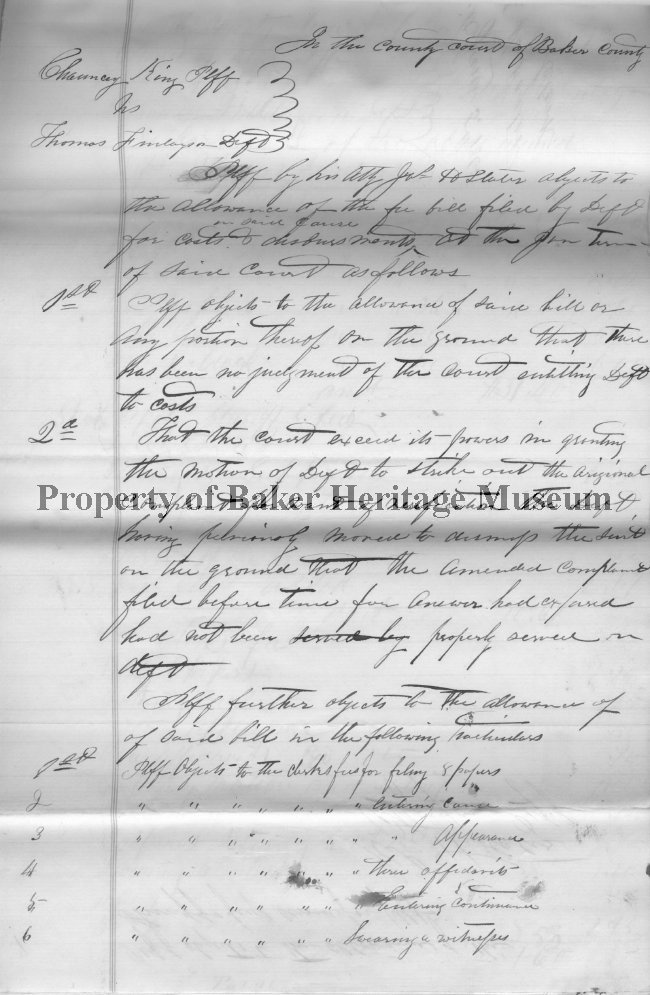 In the county court of Baker County
Chauncey King Plff
vs
Thomas Finlayson Deft
Plff by his Atty Jas H Slater objects to
the allowance of the fee bill filed by Deft
in said Cause
for costs & disbursments, at the Jan term
of said court as follows
1st Plff objects to the allowance of said bill or
any portion thereof on the ground that there
has been no judgment of the court entitling Deft
to costs
2d That the court exceed its powers in granting
the motion of Deft to strike out the original
Property of Baker Heritage Museum
complaint for want of verification the deft
having previously moved to dismiss the suit
on the ground that the amended complaint
filed before time for answer had expired
had not been served by properly served on
deft
Plff further objects to the allowance of
of said bill in the following particulars
1st Plff Objects to the clerks fees for filing 8 papers
2 " " " " " " " entering cause
3 " " " " " " " " Appearance
4 " " " " " " " three affidavits
5 " " " " " " " Entering Continuance
6 " " " " " " Swearing 2 witnesses